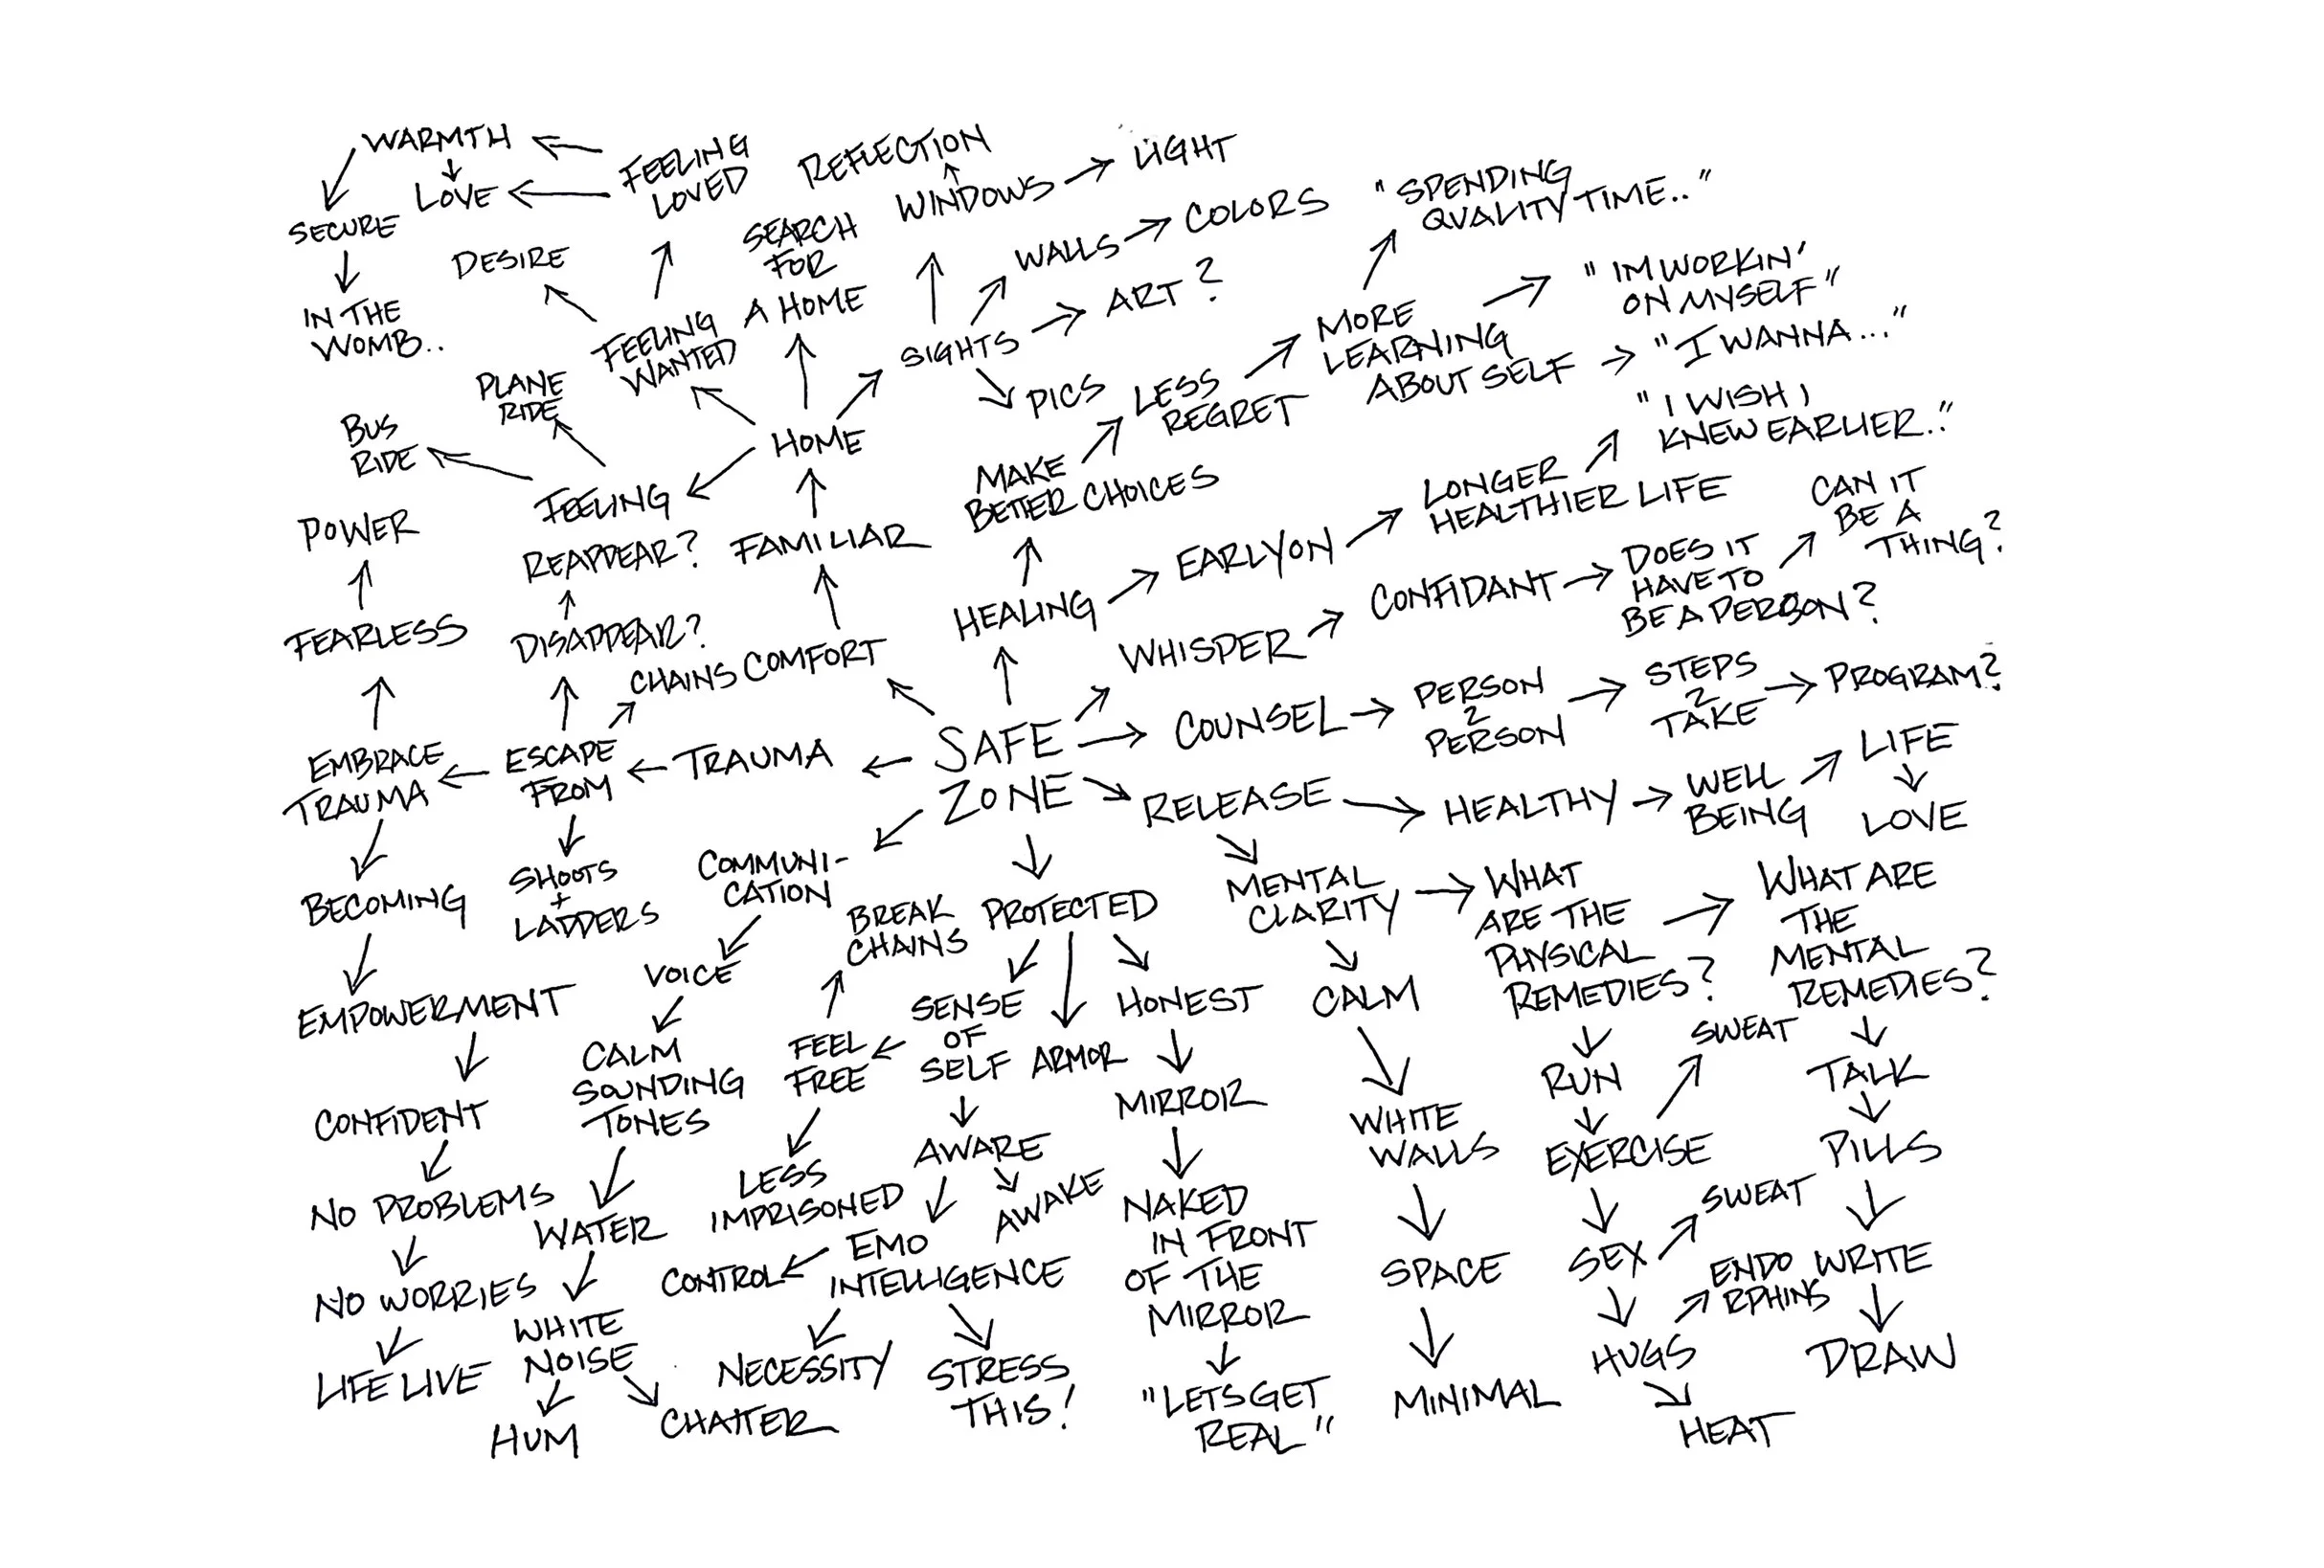 WARMTH
LOVE
SECURE
IN THE
WOMB..
FEELING
LOVED
DESIRE
FEELING
WANTED
REFLECTION
WINDOWS
LIGHT
SEARCH
FOR
A HOME
WALLS
COLORS
SIGHTS
ART?
PICS
"SPENDING
QUALITY TIME.."
"IM WORKIN'
ON MYSELF"
"I WANNA..."
MORE
LEARNING
ABOUT SELF
LESS
REGRET
MAKE
BETTER CHOICES
"I WISH I
KNEW EARLIER.."
LONGER
HEALTHIER LIFE
EARLY ON
HEALING
PLANE
RIDE
BUS
RIDE
FEELING
HOME
FAMILIAR
COMFORT
POWER
FEARLESS
REAPPEAR?
DISAPPEAR?
CHAINS
EMBRACE
TRAUMA
ESCAPE
FROM
TRAUMA
SAFE
ZONE
WHISPER
CONFIDANT
DOES IT
HAVE TO
BE A PERSON?
CAN IT
BE A
THING?
COUNSEL
PERSON
2
PERSON
STEPS
2
TAKE
PROGRAM?
RELEASE
HEALTHY
WELL
BEING
LIFE
LOVE
BECOMING
EMPOWERMENT
CONFIDENT
NO PROBLEMS
NO WORRIES
LIFE LIVE
SHOOTS
+
LADDERS
COMMUNI-
CATION
VOICE
CALM
SOUNDING
TONES
WATER
WHITE
NOISE
HUM
CHATTER
BREAK
CHAINS
PROTECTED
SENSE
OF
SELF
ARMOR
HONEST
FEEL
FREE
LESS
IMPRISONED
AWARE
AWAKE
EMO
INTELLIGENCE
CONTROL
NECESSITY
STRESS
THIS!
MIRROR
NAKED
IN FRONT
OF THE
MIRROR
"LETS GET
REAL"
MENTAL
CLARITY
CALM
WHITE
WALLS
SPACE
MINIMAL
WHAT
ARE THE
PHYSICAL
REMEDIES?
RUN
EXERCISE
SWEAT
SEX
SWEAT
HUGS
ENDO
RPHINS
HEAT
WHAT ARE
THE
MENTAL
REMEDIES?
TALK
PILLS
WRITE
DRAW